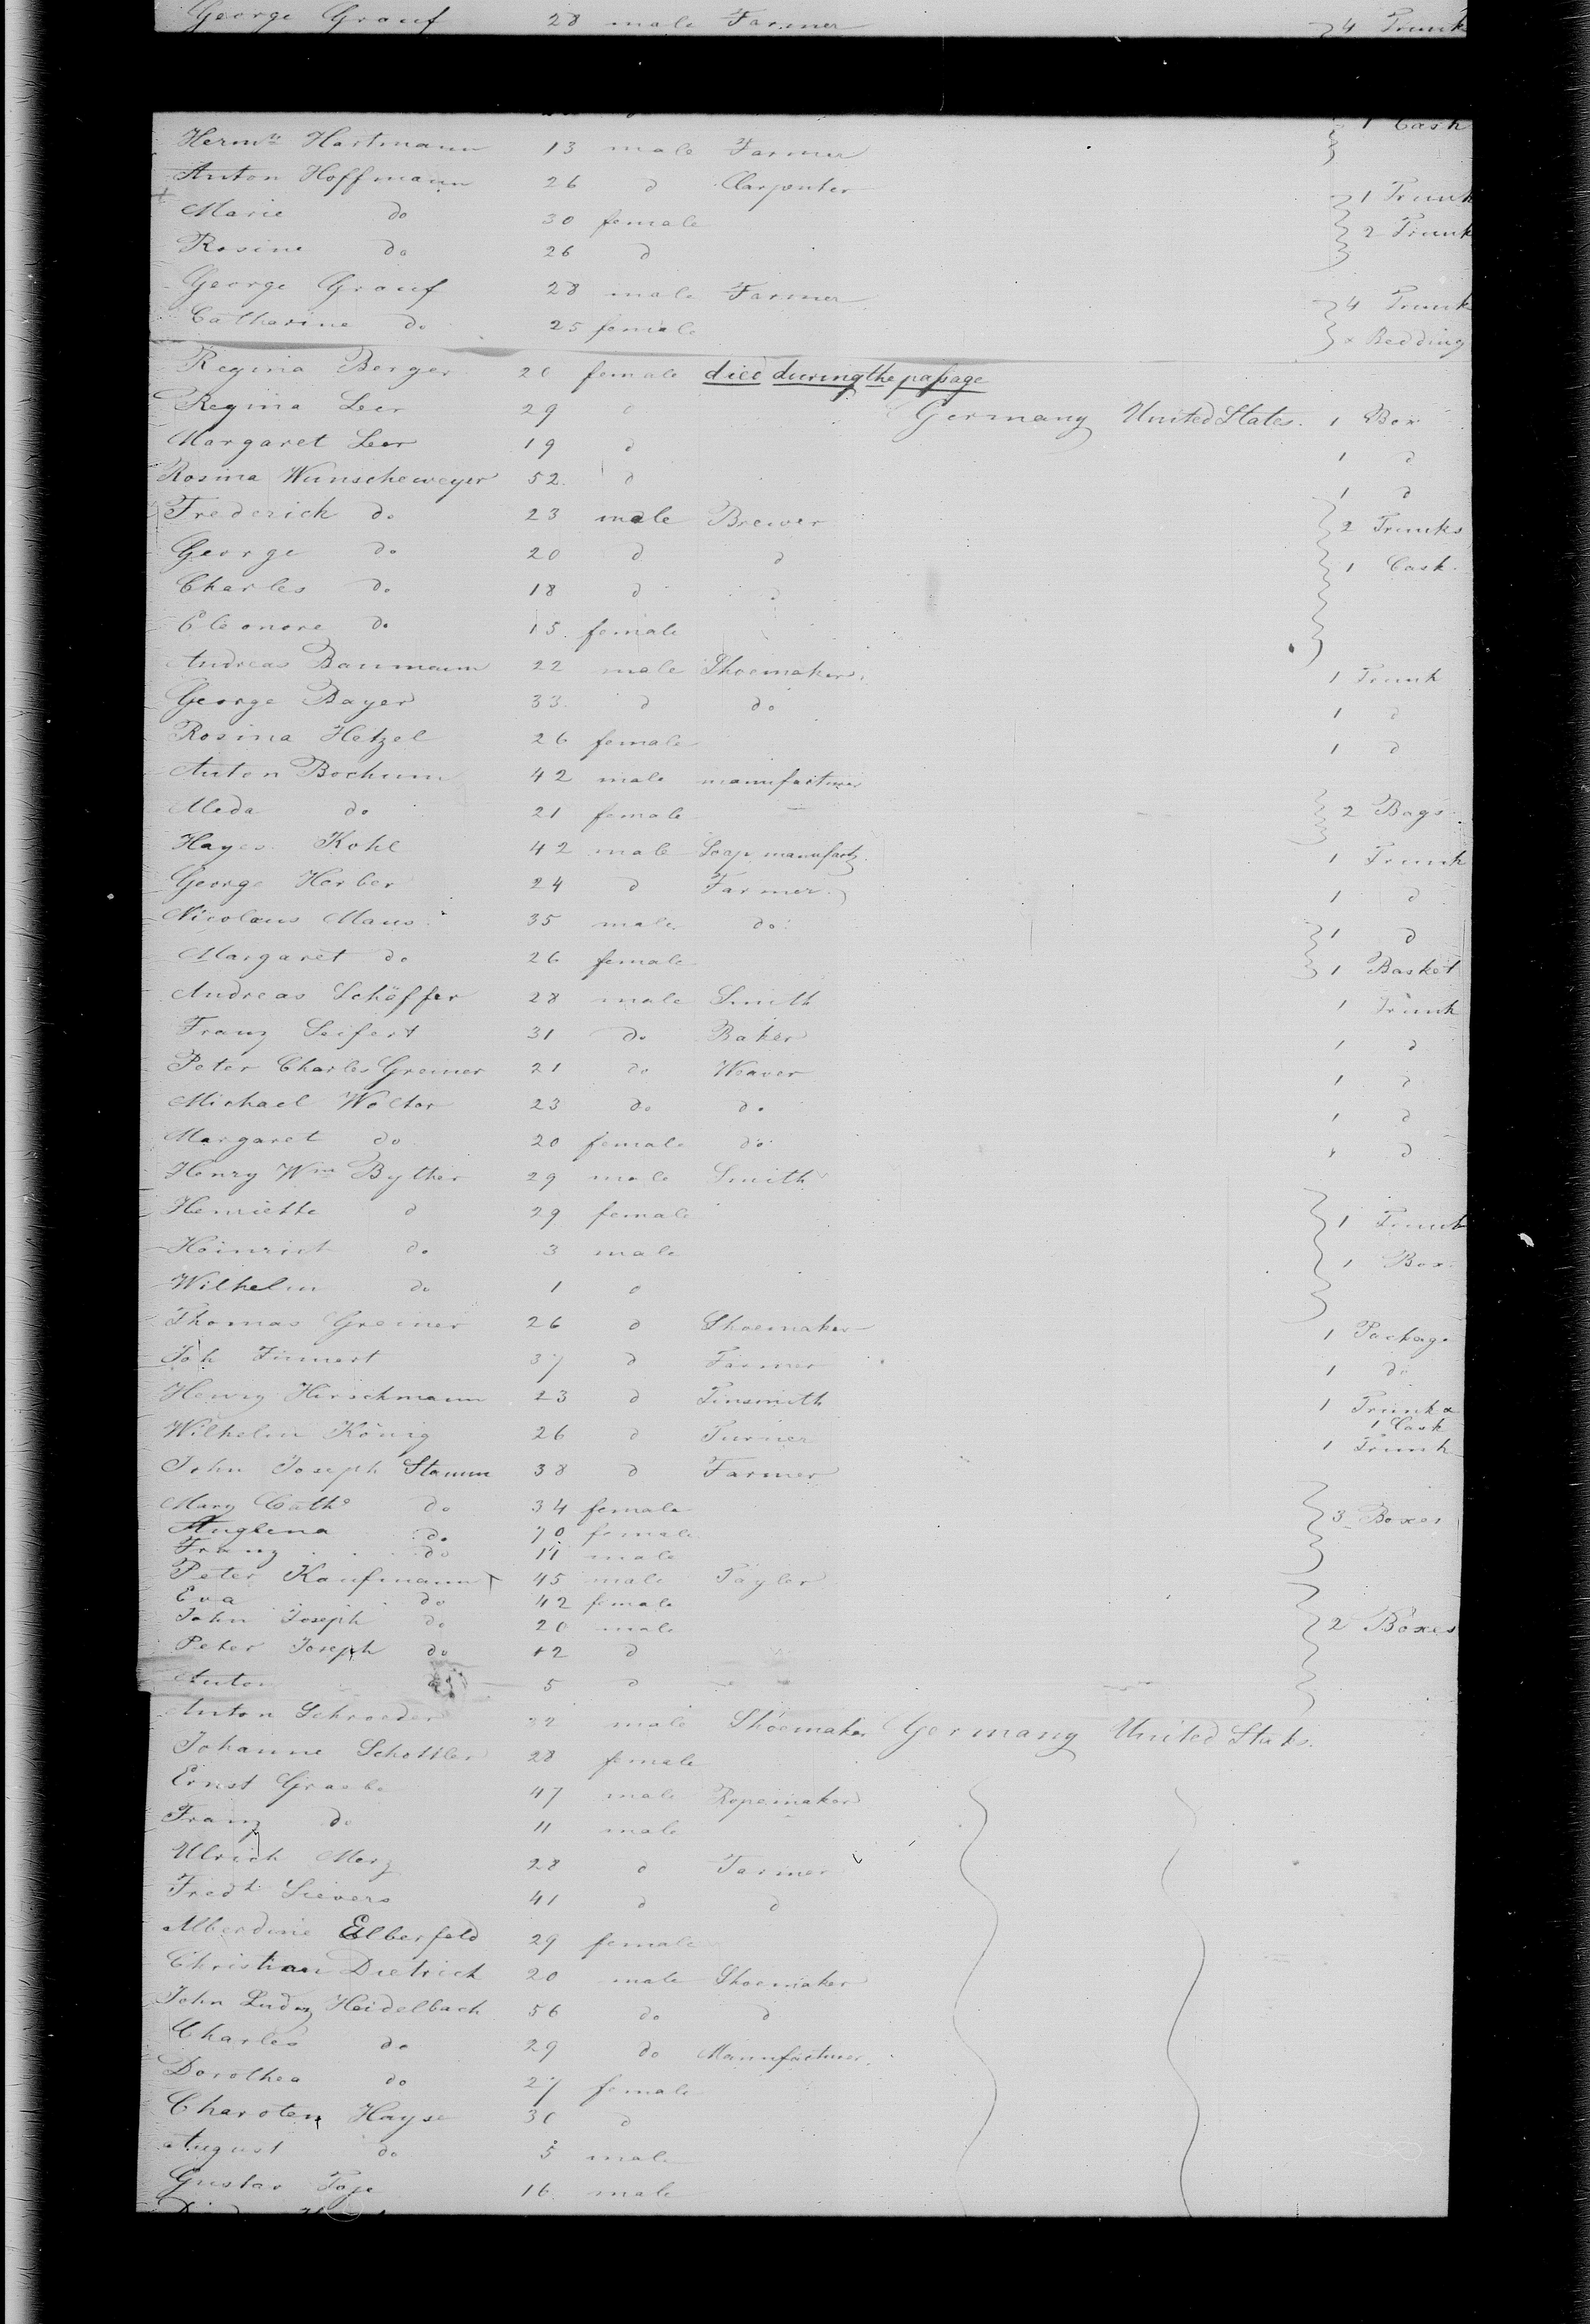 George Grauf 28 male Farmer 4 Trunk
1 Cask
Herm. Hartmann 13 male Farmer
Anton Hoffmann 26 d Carpenter 1 Trunk
Marie do 30 female 2 Trunk
Rosine do 26 d
George Grauf 28 male Farmer 4 Trunk
Catharine do 25 female & Bedding
Regina Berger 26 female died during the passage
Regina Leer 29 d Germany United States. 1 Box
Margaret Leer 19 d 1 d
Rosina Wunscheweyer 52 d 1 d
Frederick do 23 male Brewer 2 Trunks
George do 20 d d 1 Cask
Charles do 18 d d
Eleonore do 15 female
Andreas Baumann 22 male Shoemaker 1 Trunk
George Bayer 33 d do 1 d
Rosina Hetzel 26 female 1 d
Anton Bochum 42 male manufacturer
Meda do 21 female 2 Bags
Hayes Kohl 42 male Soap manufact. 1 Trunk
George Herber 24 d Farmer 1 d
Nicolaus Maus 35 male do 1 d
Margaret do 26 female 1 Basket
Andreas Schäffer 28 male Smith 1 Trunk
Franz Seifert 31 do Baker 1 d
Peter Charles Greiner 21 do Weaver 1 d
Michael Wolter 23 do do 1 d
Margaret do 20 female do 1 d
Henry Wm Byther 29 male Smith
Henriette d 29 female 1 Trunk
Heinrich do 3 male 1 Box
Wilhelm do 1 d
Thomas Greiner 26 d Shoemaker 1 Package
Joh 37 d Farmer 1 do
Henry Hirschmann 23 d Tinsmith 1 Trunk &
1 Cask
Wilhelm König 26 d Turner 1 Trunk
John Joseph Stamm 38 d Farmer
Mary Cath. do 34 female 3 Boxes
do female
Franz do 11 male
Peter Kaufmann 45 male Tayler
Eva do 42 female
John Joseph do 20 male 2 Boxes
Peter Joseph do 12 d
Anton 5 d
Anton Schroeder 32 male Shoemaker Germany United States.
Johanne Schottler 28 female
Ernst Graebe 47 male Ropemaker
Franz do 11 male
Ulrich Merz 28 d Farmer
Fredk Sievers 41 d d
Alberdine Elberfeld 29 female
Christian Dietrich 20 male Shoemaker
John Ludw Heidelbach 56 do d
Charles do 29 do Manufacturer
Dorothea do 27 female
Charoten Hayse 30 d
August do 5 male
Gustav 16 male